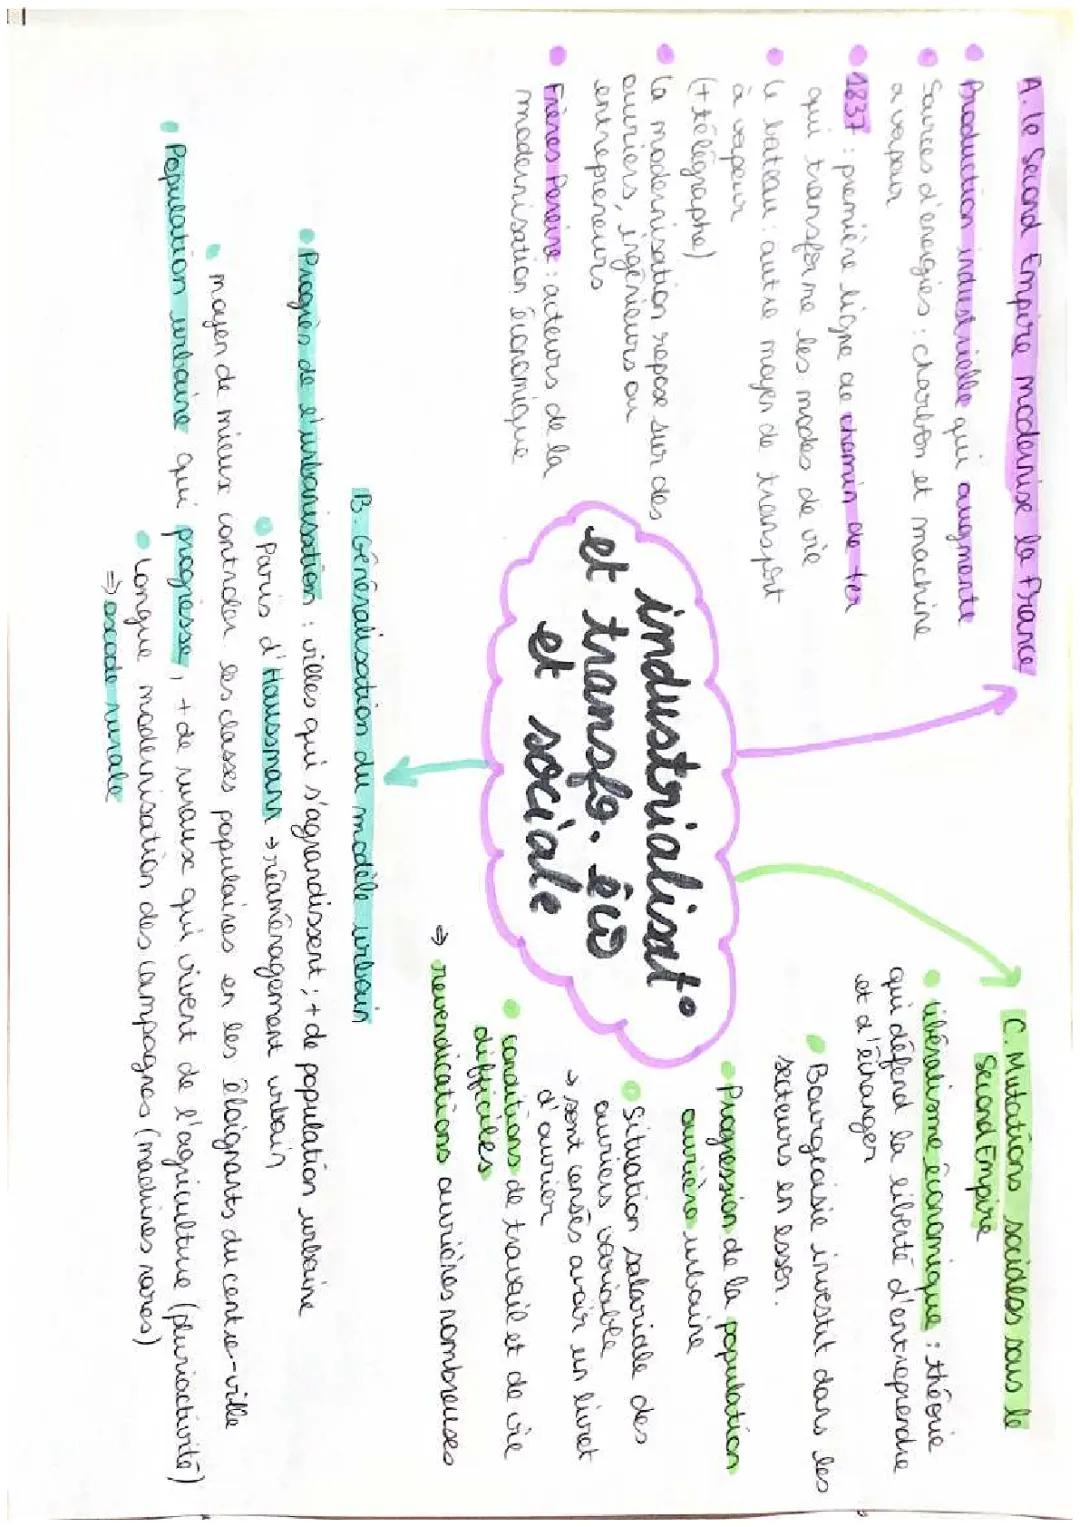 industrialisat°
et transfo. éco
et sociale
A. le Second Empire modernise la France
• Production industrielle qui augmente
• Sources d'énergies : charbon et machine
a vapeur
• 1837 : première ligne de chemin de fer
qui transforme les modes de vie
• le bateau : autre moyen de transport
à vapeur
(+ télégraphe)
• la modernisation repose sur des
ouvriers, ingénieurs ou
entrepreneurs
• Frères Pereire : acteurs de la
modernisation économique
B. Généralisation du modèle urbain
• Progrès de l'urbanisation : villes qui s'agrandissent ; + de population urbaine
• Paris d'Haussmann → réaménagement urbain
• moyen de mieux controler les classes populaires en les éloignants du centre-ville
• Population urbaine qui progresse, + de ruraux qui vivent de l'agriculture (pluriactivité)
• Longue modernisation des campagnes (machines rares)
⇒ exode rurale
C. Mutations sociales sous le
Second Empire
• libéralisme économique : théorie
qui défend la liberté d'entreprendre
et d'échanger
• Bourgeoisie investit dans les
secteurs en essor.
• Progression de la population
ouvrière urbaine
• Situation salariale des
ouvriers variable
→ sont censés avoir un livret
d'ouvrier
• conditions de travail et de vie
difficiles
⇒ revendications ouvrières nombreuses